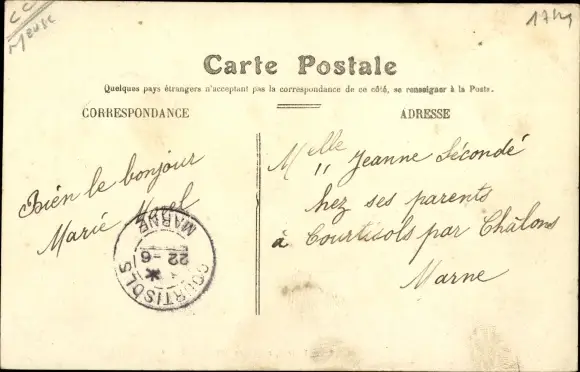 CC
Meuse
Carte Postale
Quelques pays étrangers n'acceptant pas la correspondance de ce côté, se renseigner à la Poste.
CORRESPONDANCE
ADRESSE
Bien le bonjour
Marie
Melle Jeanne Sécondé
hez ses parents
à Courtisols par Châlons
Marne
COURTISOLS
22 - 6
MARNE